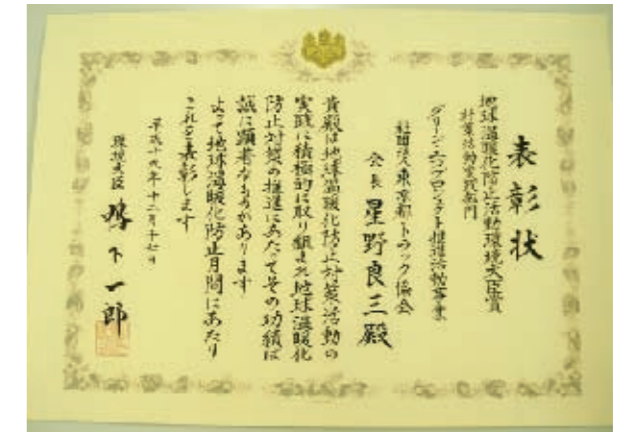 表彰状
地球温暖化防止活動環境大臣賞
対策活動実践部門
グリーン・エコプロジェクト推進活動事業
社団法人東京都トラック協会
会長 星野良三殿
貴殿は地球温暖化防止対策活動の
実践に積極的に取り組まれ地球温暖化
防止対策の推進にあたってその功績は
誠に顕著なものがあります
よって地球温暖化防止月間にあたり
これを表彰します
平成十九年十二月十七日
環境大臣 鴨下一郎